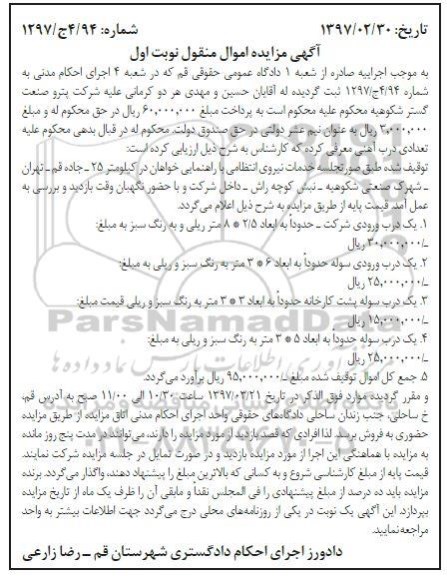 تاریخ: ۱۳۹۷/۰۲/۳۰ شماره: ۴/۹۴ج/۱۲۹۷
آگهی مزایده اموال منقول نوبت اول
به موجب اجراییه صادره از شعبه ۱ دادگاه عمومی حقوقی قم که در شعبه ۴ اجرای احکام مدنی به
شماره ۴/۹۴ج/۱۲۹۷ ثبت گردیده له آقایان حسین و مهدی هر دو کرمانی علیه شرکت پترو صنعت
گستر شکوهیه محکوم علیه محکوم است به پرداخت مبلغ ۶۰,۰۰۰,۰۰۰ ریال در حق محکوم له و مبلغ
۳,۰۰۰,۰۰۰ ریال به عنوان نیم عشر دولتی در حق صندوق دولت. محکوم له در قبال بدهی محکوم علیه
تعدادی درب آهنی معرفی کرده که کارشناس به شرح ذیل ارزیابی کرده است:
توقیف شده طبق صورتجلسه خدمات نیروی انتظامی با راهنمایی خواهان در کیلومتر ۲۵ ـ جاده قم ـ تهران
ـ شهرک صنعتی شکوهیه ـ نبش کوچه راش ـ داخل شرکت و با حضور نگهبان وقت بازدید و بررسی به
عمل آمد. قیمت پایه از طریق مزایده به شرح ذیل اعلام می‌گردد.
۱. یک درب ورودی شرکت ـ حدوداً به ابعاد ۲/۵ * ۸ متر ریلی و به رنگ سبز به مبلغ:
ـ/۳۰,۰۰۰,۰۰۰ ریال
۲. یک درب ورودی سوله حدوداً به ابعاد ۶ * ۳ متر به رنگ سبز و ریلی به مبلغ:
ـ/۲۵,۰۰۰,۰۰۰ ریال
۳. یک درب سوله پشت کارخانه حدوداً به ابعاد ۳ * ۳ متر به رنگ سبز و ریلی قیمت مبلغ:
ـ/۱۵,۰۰۰,۰۰۰ ریال
۴. یک درب سوله حدوداً به ابعاد ۵ * ۳ متر به رنگ سبز و ریلی به مبلغ:
ـ/۲۵,۰۰۰,۰۰۰ ریال
۵. جمع کل اموال توقیف شده مبلغ ـ/۹۵,۰۰۰,۰۰۰ ریال برآورد می‌گردد.
و مقرر گردیده موارد فوق الذکر در تاریخ ۱۳۹۷/۳/۲۱ ساعت ۱۰:۳۰ الی ۱۱/۰۰ صبح به آدرس قم،
خ ساحلی، جنب زندان ساحلی دادگاه‌های حقوقی واحد اجرای احکام مدنی اتاق مزایده از طریق مزایده
حضوری به فروش برسد. لذا افرادی که قصد بازدید از مورد مزایده را دارند، می‌توانند در مدت پنج روز مانده
به مزایده با هماهنگی این اجرا از مورد مزایده بازدید و در صورت تمایل در جلسه مزایده شرکت نمایند.
قیمت پایه از مبلغ کارشناسی شروع و به کسانی که بالاترین مبلغ را پیشنهاد دهند، واگذار می‌گردد. برنده
مزایده باید ده درصد از مبلغ پیشنهادی را فی المجلس نقداً و مابقی آن را ظرف یک ماه از تاریخ مزایده
بپردازد. این آگهی یک نوبت در یکی از روزنامه‌های محلی درج می‌گردد جهت اطلاعات بیشتر به واحد
مراجعه نمایید.
دادورز اجرای احکام دادگستری شهرستان قم ـ رضا زارعی
ParsNamadData